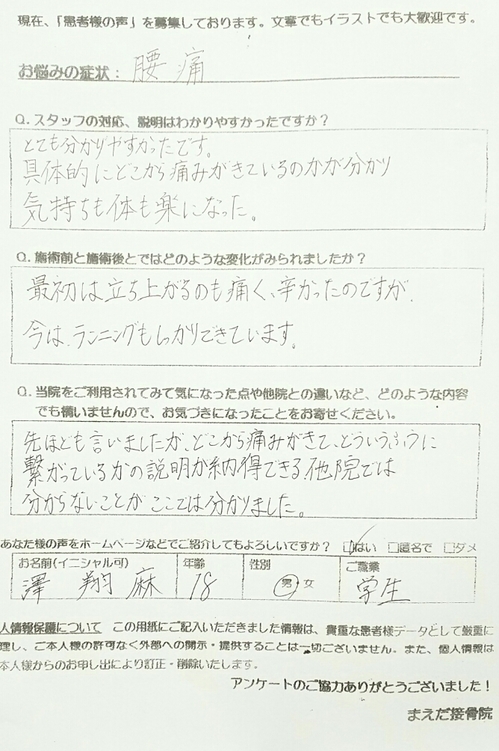 現在、「患者様の声」を募集しております。文章でもイラストでも大歓迎です。
お悩みの症状： 腰痛
Q. スタッフの対応、説明はわかりやすかったですか？
とても分かりやすかったです。
具体的にどこから痛みがきているのかが分かり
気持ちも体も楽になった。
Q. 施術前と施術後とではどのような変化がみられましたか？
最初は、立ち上がるのも痛く、辛かったのですが、
今は、ランニングもしっかりできています。
Q. 当院をご利用されてみて気になった点や他院との違いなど、どのような内容
でも構いませんので、お気づきになったことをお寄せください。
先ほども言いましたが、どこから痛みがきて、どういうふうに
繋がっているかの説明が納得できる他院では
分からないことがここでは分かりました。
あなた様の声をホームページなどでご紹介してもよろしいですか？ □はい □匿名で □ダメ
お名前(イニシャル可) 年齢 性別 ご職業
澤 翔麻 18 男 女 学生
人情報保護について この用紙にご記入いただきました情報は、貴重な患者様データとして厳重に
理し、ご本人様の許可なく外部への開示・提供することは一切ございません。また、個人情報は
本人様からのお申し出により訂正・削除いたします。
アンケートのご協力ありがとうございました！
まえだ接骨院